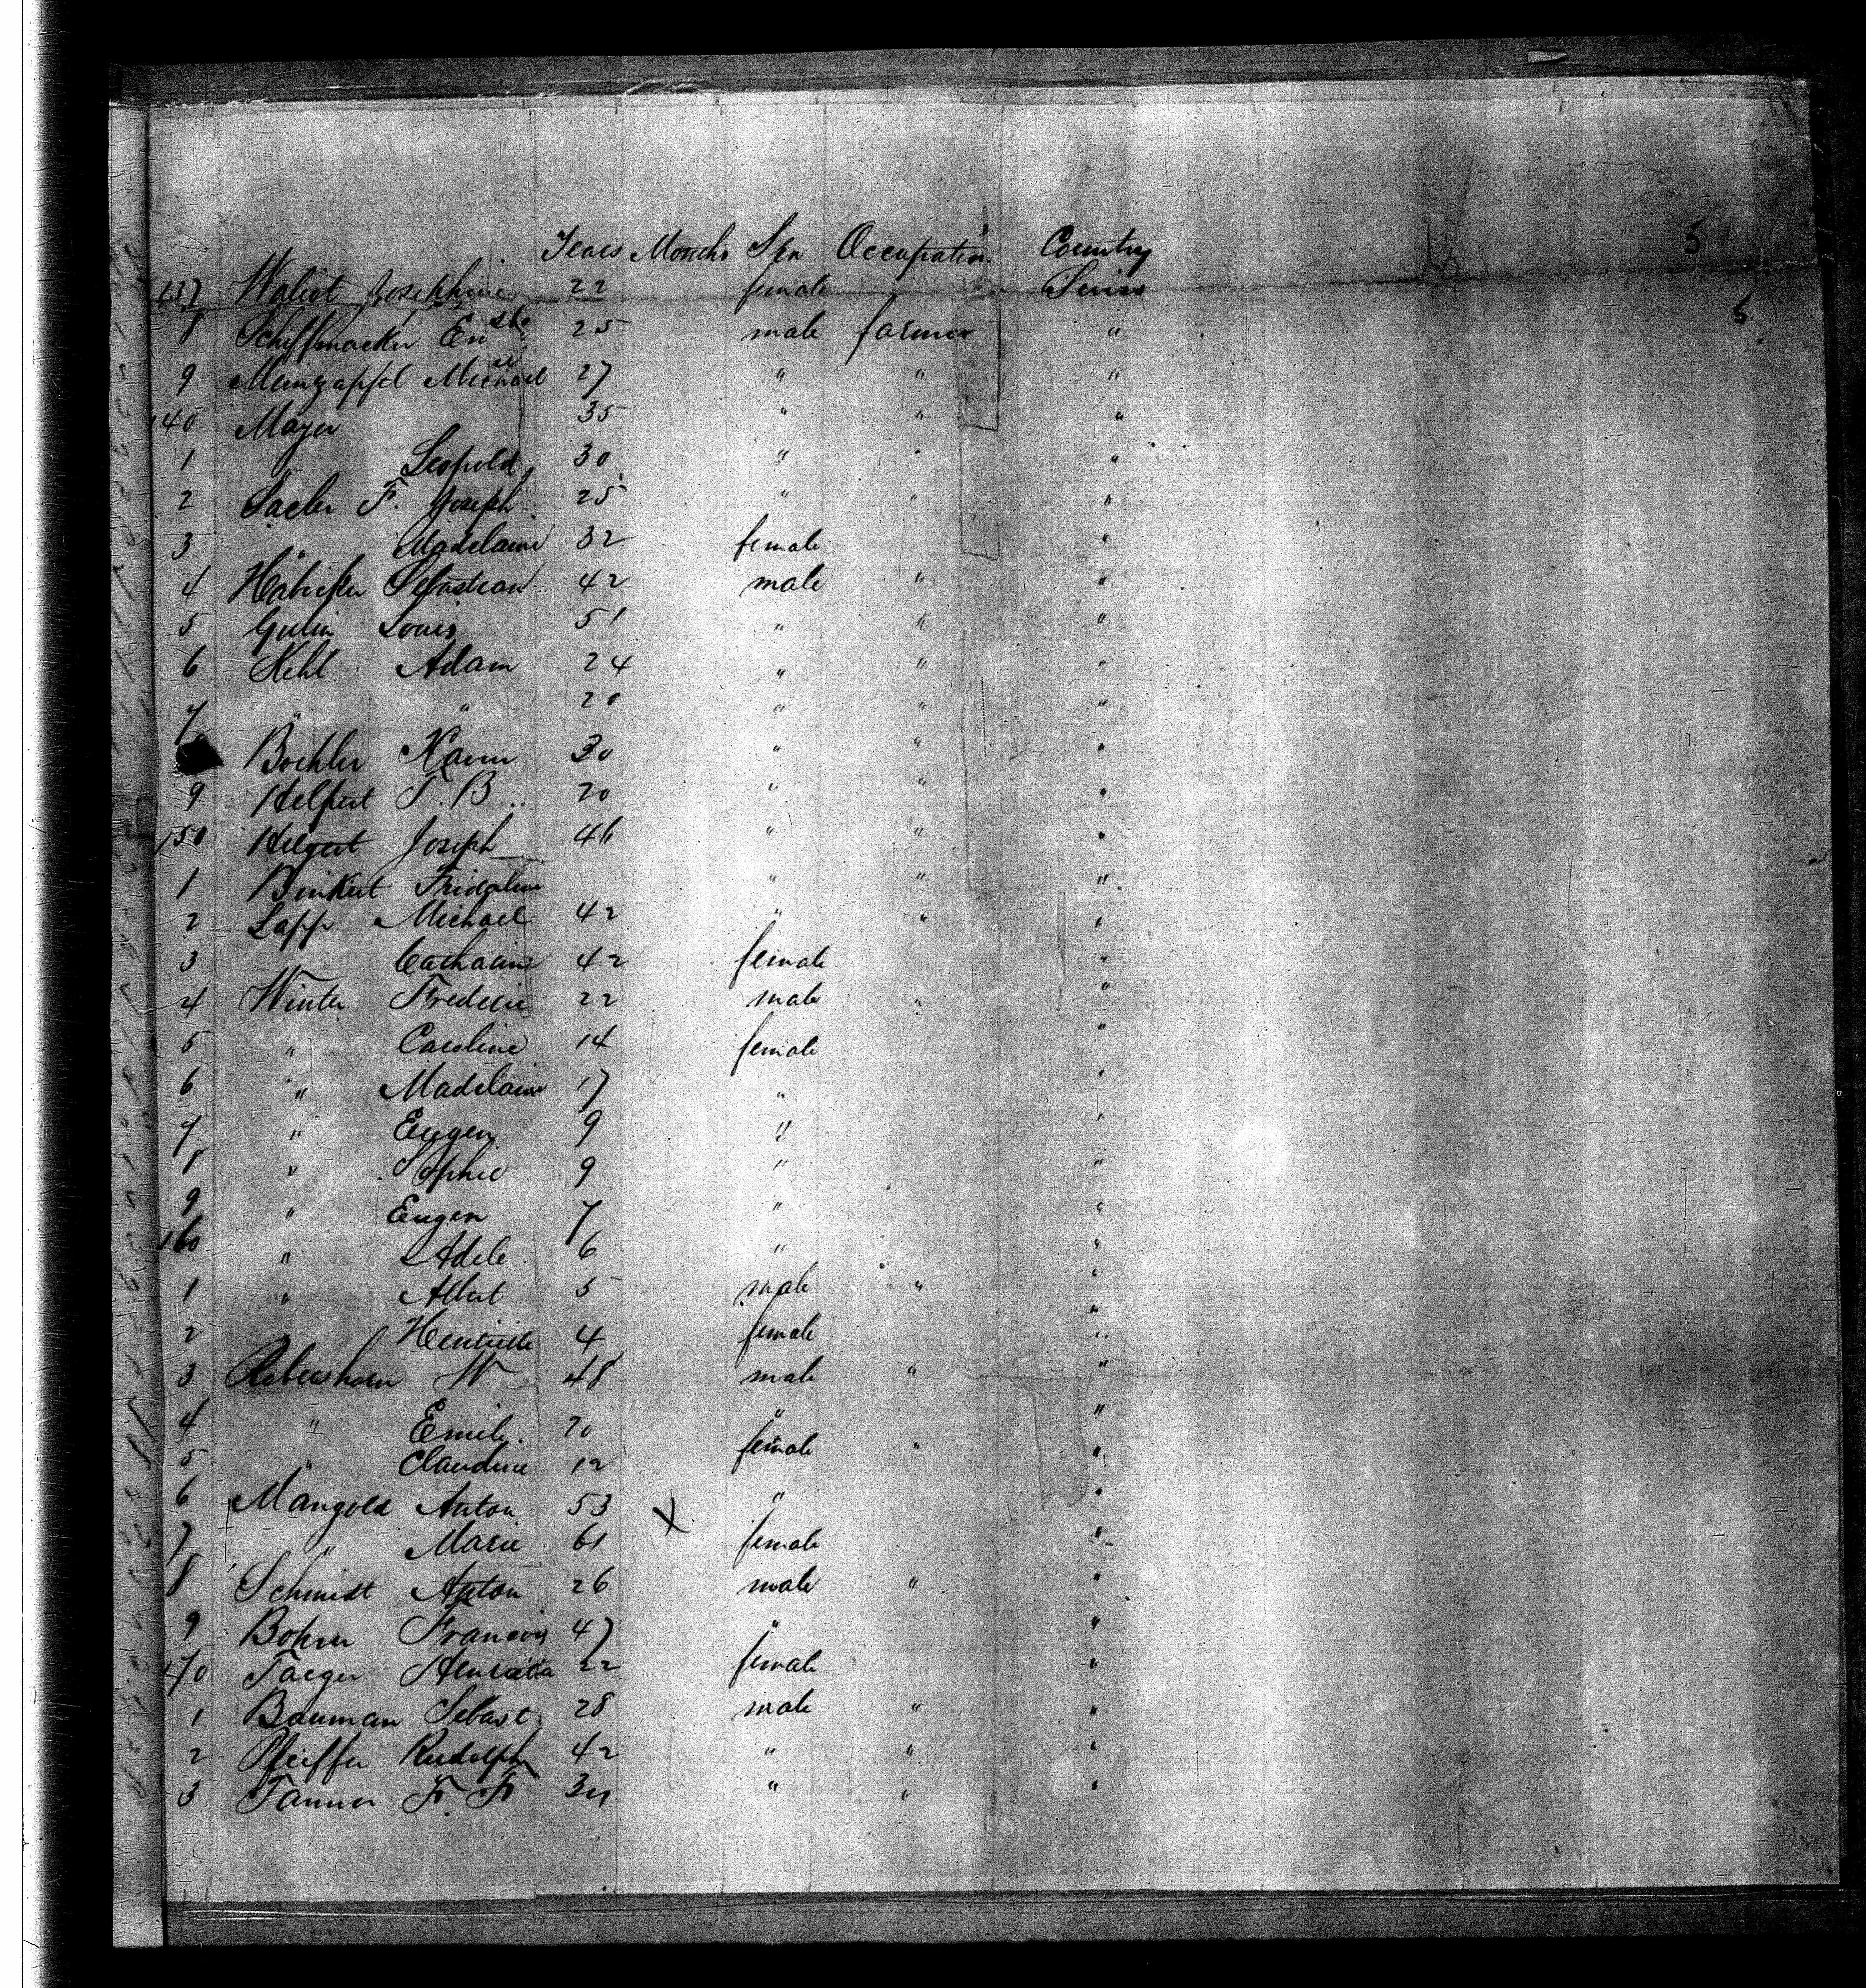 Years Months Sex Occupation Country 5
137 Waliot Josephine 22 female Swiss
8 Schiffmacker Ernst 25 male farmer " 5
9 Mungapfel Michael 27 " " "
140 Mayer 35 " " "
1 " Leopold 30 " " "
2 Saeler F. Joseph 25 " " "
3 " Madelaine 32 female "
4 Sebastian 42 male " "
5 Louis 51 " " "
6 Kehl Adam 24 " " "
7 " " 20 " " "
Boehler Xavier 30 " " "
9 Helfert J. B. 20 " " "
150 Joseph 46 " " "
1 Binkert Fridoline " " "
2 Lapp Michael 42 " " "
3 Catharine 42 female "
4 Winter Frederic 22 male " "
5 " Caroline 14 female "
6 " Madelaine 17 " "
7 " Eugen 9 " "
8 " Sophie 9 " "
9 " Eugen 7 " "
160 " Adele 6 " "
1 " Albert 5 male " "
2 Henriette 4 female "
3 W 48 male " "
4 " Emile 20 " "
5 " Claudine 12 female " "
6 Mangold Anton 53 X " "
7 " Marie 61 female "
8 Schmidt Anton 26 male " "
9 Bohrer Francois 47 " "
170 Jaeger Henrietta 22 female "
1 Bauman Sebast 28 male " "
2 Pfeiffer Rudolph 42 " " "
3 Tanner F. F. 34 " " "